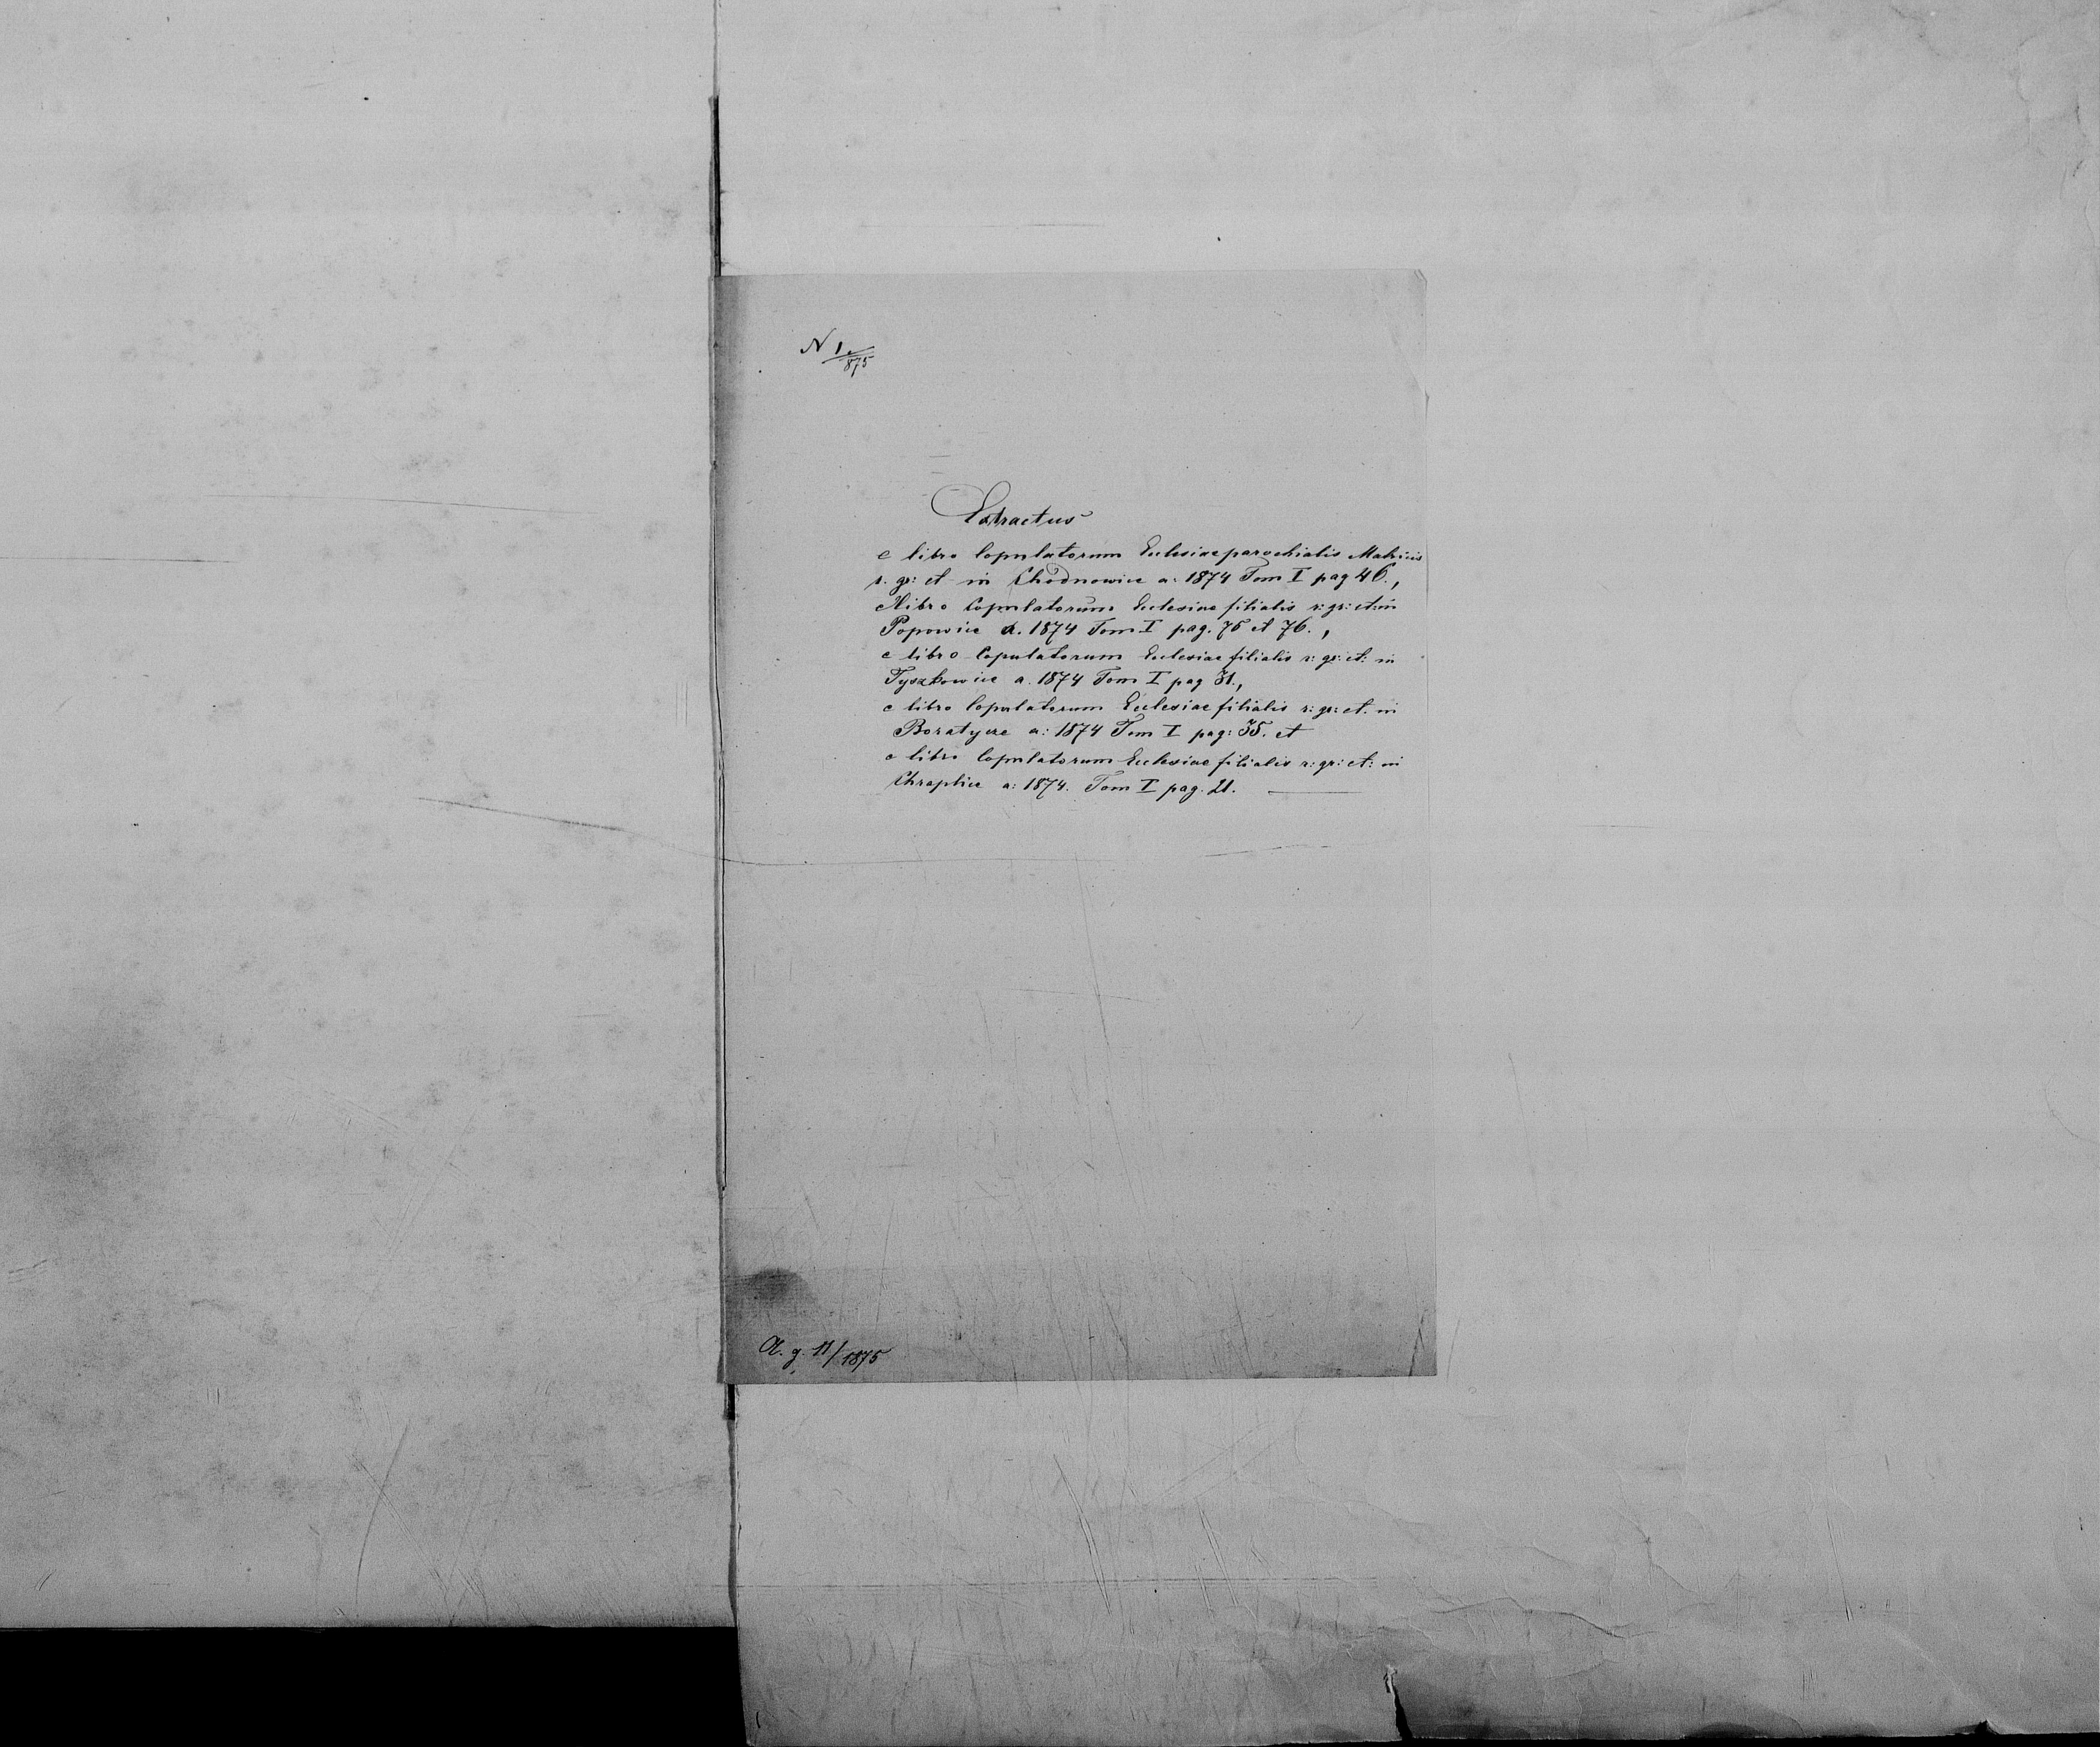 N 1./875
Extractus
e libro Copulatorum Eclesiae parochialis Matricis
r. gr: ct in Chodnowice a: 1874 Tom I pag 46.,
e libro Copulatorum Eclesiae filialis r: gr: ct: in
Popowice a. 1874 Tom I pag. 75 et 76.,
e libro Copulatorum Eclesiae filialis r: gr: ct: in
Tyszkowice a. 1874 Tom I pag 31.,
e libro Copulatorum Eclesiae filialis r: gr: ct. in
Boratycze a: 1874 Tom I pag: 35. et
e libro Copulatorum Eclesiae filialis r: gr: ct: in
Chraplice a: 1874. Tom I pag. 21.
A. g. 11/1875